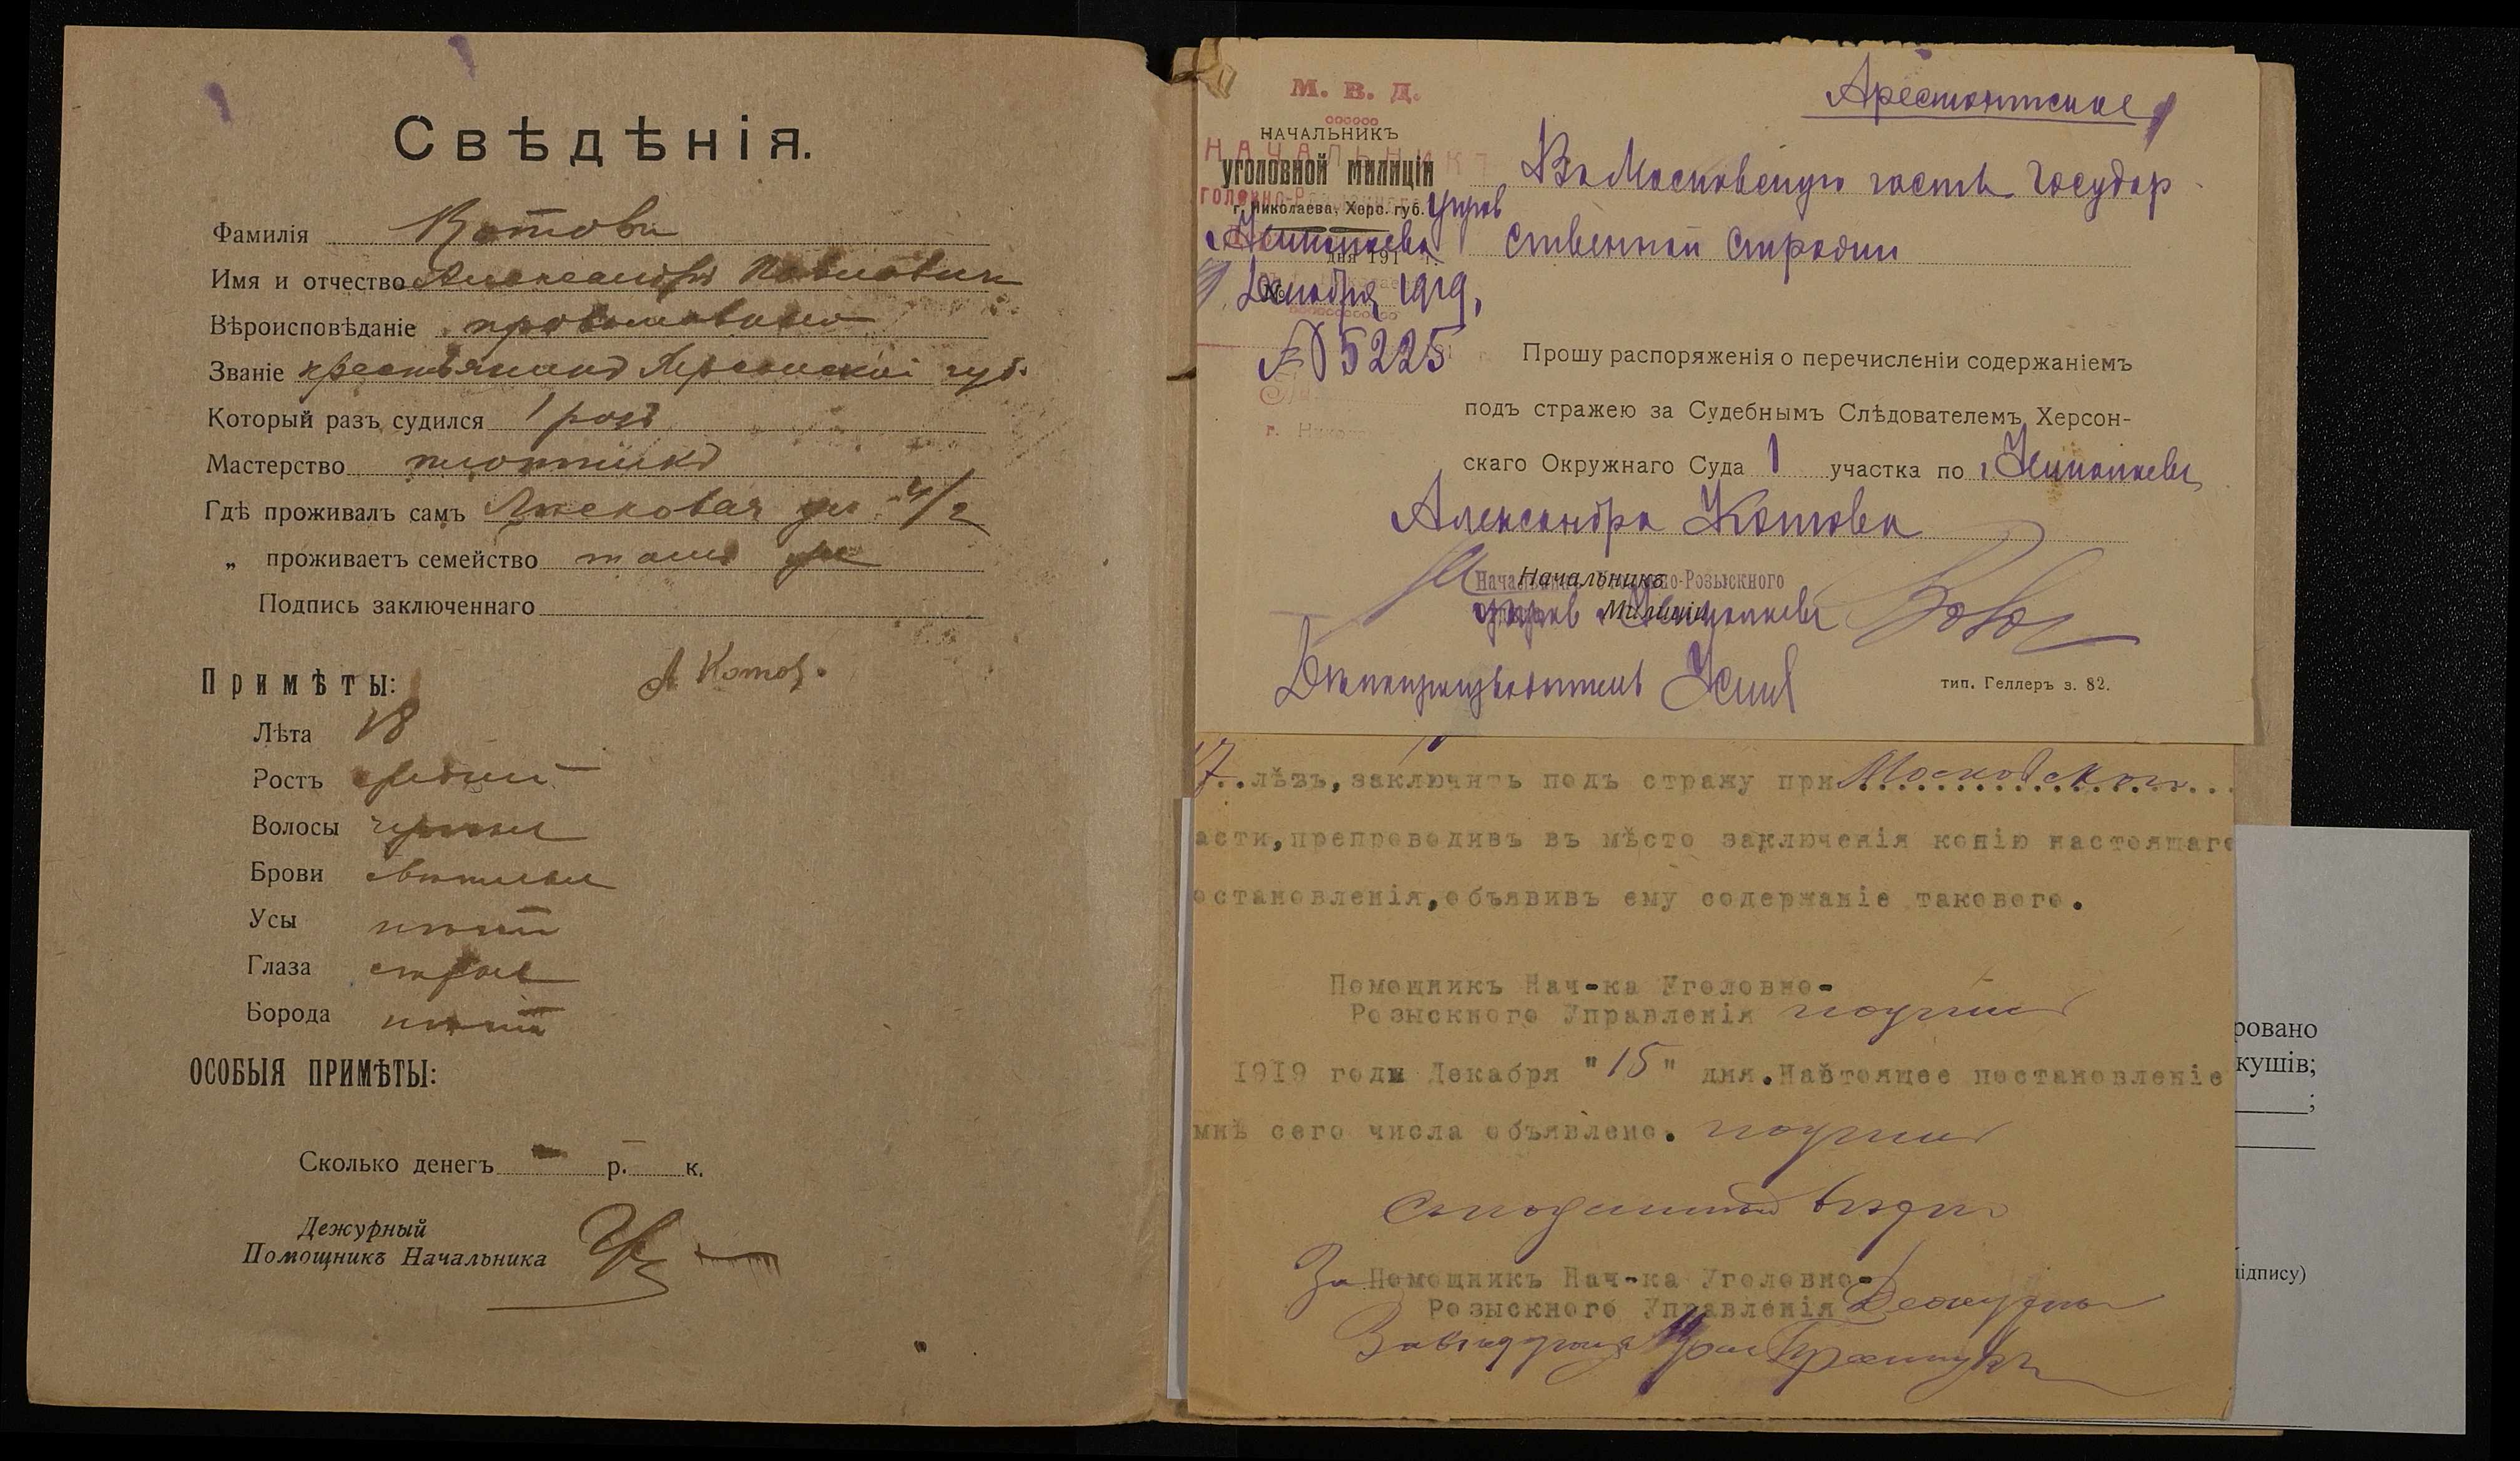 Свѣдѣнія.
Фамилія Котовъ
Имя и отчество Александръ Павловичъ
Вѣроисповѣданіе православно
Званіе крестьянинъ Херсонской губ.
Который разъ судился 1 разъ
Мастерство плотникъ
Гдѣ проживалъ самъ ул. 4/2
„ проживаетъ семейство тамъ же
Подпись заключеннаго
А Котов.
Примѣты:
Лѣта 18
Ростъ средній
Волосы черные
Брови
Усы нѣтъ
Глаза сѣрые
Борода нѣтъ
ОСОБЫЯ ПРИМѢТЫ:
Сколько денегъ — р. — к.
Дежурный
Помощникъ Начальника
Арестантское
М. В. Д.
НАЧАЛЬНИКЪ
УГОЛОВНОЙ МИЛИЦІИ
г. Николаева, Херс. губ.
Николаева
дня 191 г.
Декабря 1919,
№ 5225
Въ Московскую часть Государ
ственной Стражи
Прошу распоряженія о перечисленіи содержаніемъ
подъ стражею за Судебнымъ Слѣдователемъ Херсон-
скаго Окружнаго Суда 1 участка по г. Николаеву
Александра Котова
Начальникъ
Милиціи Николаева
Дѣлопроизводитель
тип. Геллеръ з. 82.
17..лѣтъ, заключить подъ стражу при Московской
асти, препроводивъ въ мѣсто заключенія копію настоящаго
остановленія, объявивъ ему содержаніе такового.
Помощникъ Нач-ка Уголовно-
Розыскного Управленія подпись
1919 года Декабря "15" дня. Настоящее постановленіе
мнѣ сего числа объявлено. подпись
Съ подлиннымъ вѣрно
За Помощникъ Нач-ка Уголовно-
Розыскного Управленія
ровано
кушів;
;
ідпису)